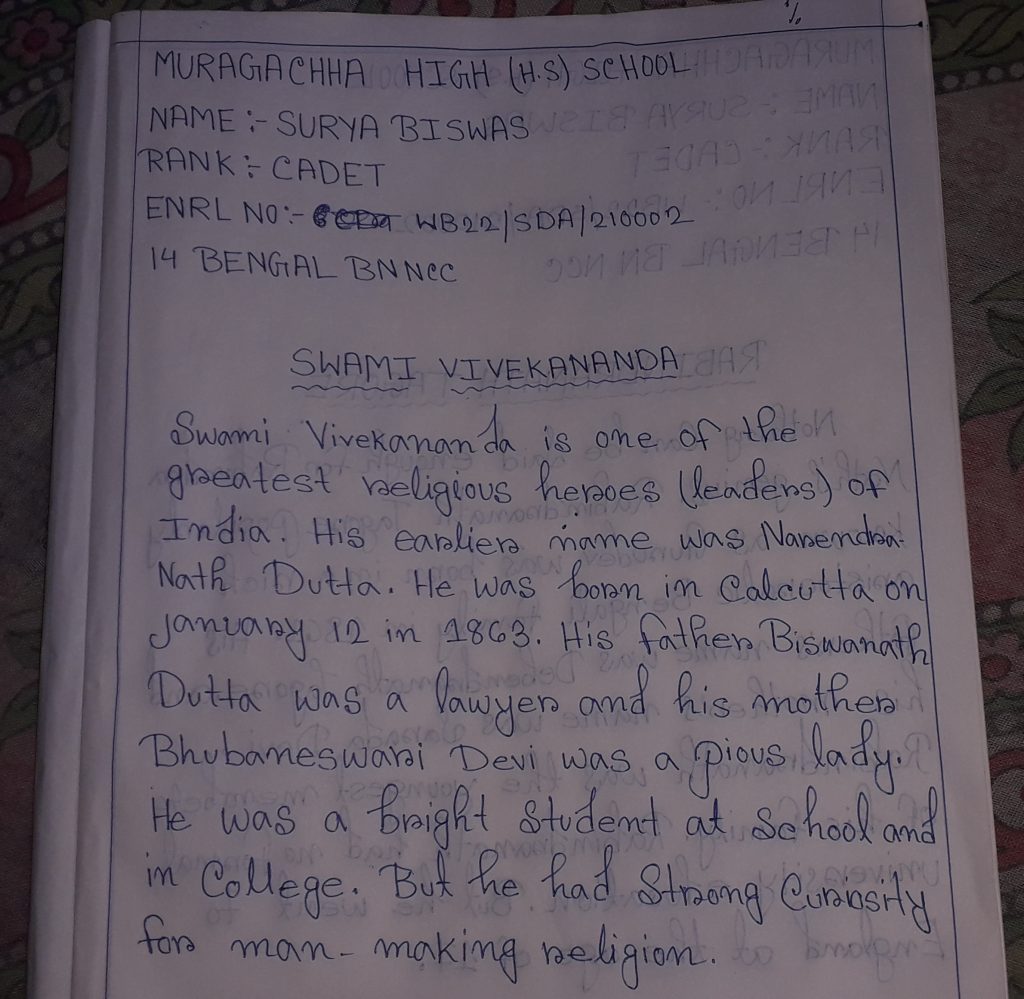 MURAGACHHA HIGH (H.S) SCHOOL
NAME :- SURYA BISWAS
RANK :- CADET
ENRL NO :- WB22/SDA/210002
14 BENGAL BN NCC
SWAMI VIVEKANANDA
Swami Vivekananda is one of the
greatest religious heroes (leaders) of
India. His earlier name was Narendra
Nath Dutta. He was born in Calcutta on
January 12 in 1863. His father Biswanath
Dutta was a lawyer and his mother
Bhubaneswari Devi was a pious lady.
He was a bright student at School and
in College. But he had Strong Curiosity
for man-making religion.